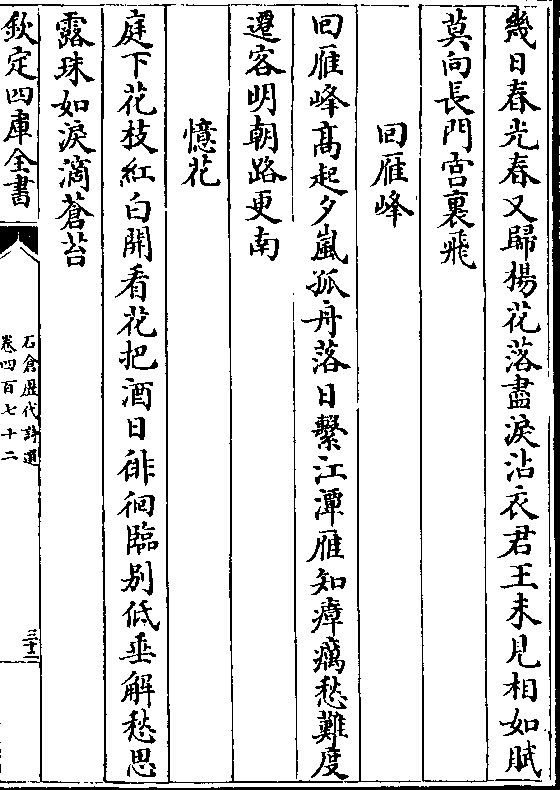 幾日春光春又歸楊花落盡淚沾衣君王未見相如賦
莫向長門宫裏飛
回雁峰
回雁峰髙起夕嵐孤舟落日繫江潭雁知瘴癘愁難度
遷客明朝路更南
憶花
庭下花枝紅白開看花把酒日徘徊臨别低垂解愁思
露珠如淚滴蒼苔
欽定四庫全書
石倉歷代詩選
卷四百七十二
三十二